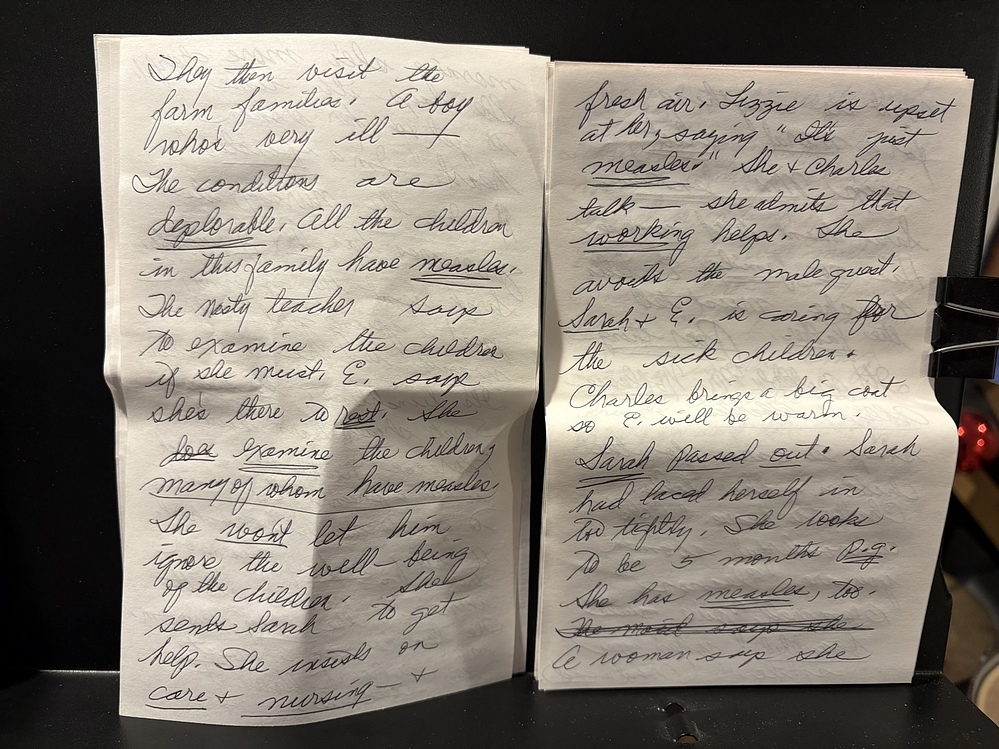 They then visit the
farm families. A boy
who's very ill —
The conditions are
deplorable. All the children
in this family have measles.
The nasty teacher says
to examine the children
if she must. E. says
she's there to rest. She
does examine the children,
many of whom have measles.
She won't let him
ignore the well-being
of the children. She
sends Sarah to get
help. She insists on
care + nursing — +
fresh air. Lizzie is upset
at her, saying "It's just
measles." She + Charles
talk — she admits that
working helps. She
avoids the male guest.
Sarah + E. is caring for
the sick children.
Charles brings a big coat
so E. will be warm.
Sarah passed out. Sarah
had laced herself in
too tightly. She looks
to be 5 months p.g.
She has measles, too.
The maid says she
A woman says she